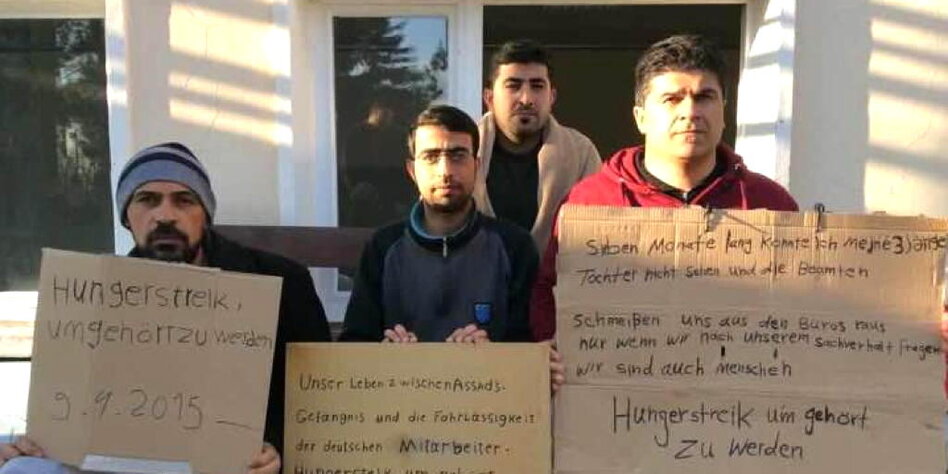 Hungerstreik,
umgehört zu werden
9.4.2015
Unser Leben zwischen Assads-
Gefängnis und die Fahrlässigkeit
der deutschen Mitarbeiter-
Hungerstreik um gehört
Sieben Monate lang konnte ich meine 3)
Tochter nicht sehen und die Beamten
Schmeißen uns aus den Büros raus
nur wenn wir nach unserem Sachverhalt fragen
wir sind auch Menschen
Hungerstreik um gehört
zu werden